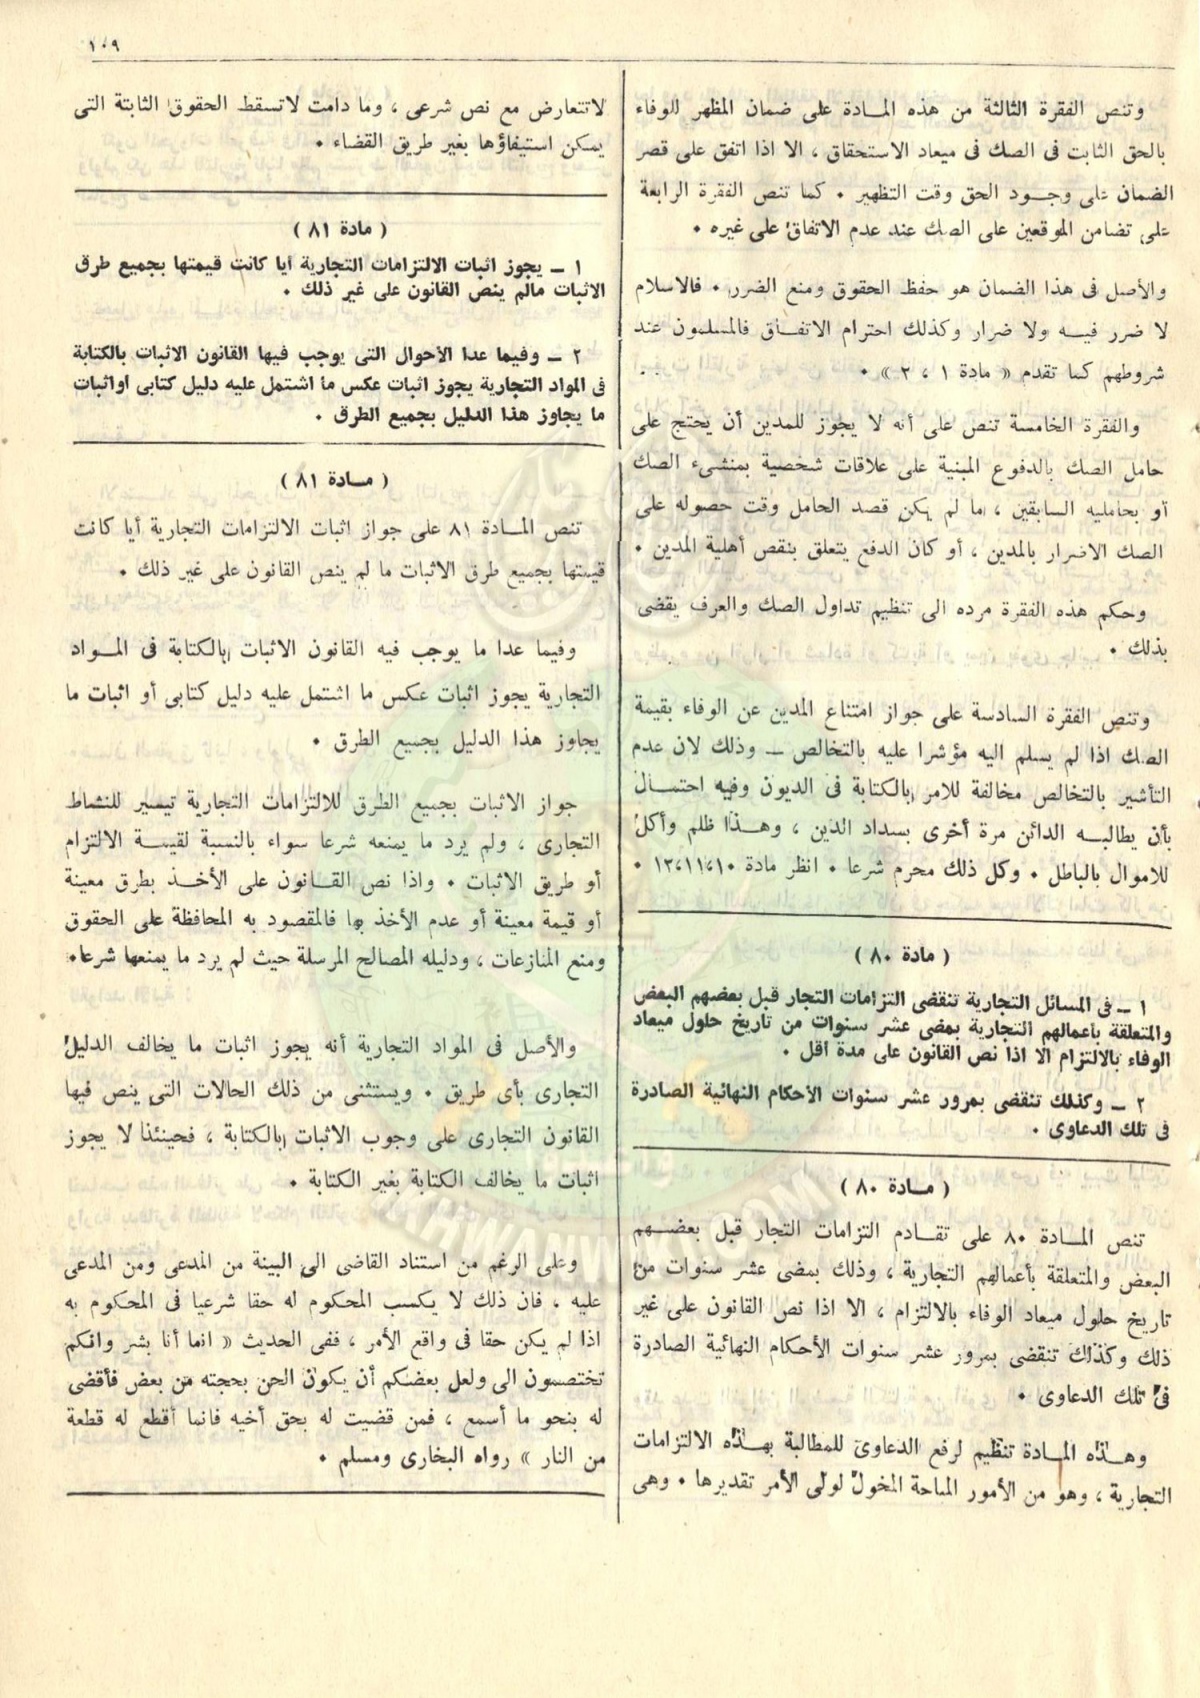 ١٠٩
وتنص الفقرة الثالثة من هذه المادة على ضمان المظهر للوفاء
بالحق الثابت فى الصك فى ميعاد الاستحقاق ، الا اذا اتفق على قصر
الضمان على وجود الحق وقت التظهير . كما تنص الفقرة الرابعة
على تضامن الموقعين على الصك عند عدم الاتفاق على غيره .
والأصل فى هذا الضمان هو حفظ الحقوق ومنع الضرر . فالاسلام
لا ضرر فيه ولا ضرار وكذلك احترام الاتفاق فالمسلمون عند
شروطهم كما تقدم « مادة ١ ، ٢ » .
والفقرة الخامسة تنص على أنه لا يجوز للمدين أن يحتج على
حامل الصك بالدفوع المبنية على علاقات شخصية بمنشىء الصك
أو بحامليه السابقين ، ما لم يكن قصد الحامل وقت حصوله على
الصك الاضرار بالمدين ، أو كان الدفع يتعلق بنقص أهلية المدين .
وحكم هذه الفقرة مرده الى تنظيم تداول الصك والعرف يقضى
بذلك .
وتنص الفقرة السادسة على جواز امتناع المدين عن الوفاء بقيمة
الصك اذا لم يسلم اليه مؤشرا عليه بالتخالص ــ وذلك لان عدم
التأشير بالتخالص مخالفة للامر بالكتابة فى الديون وفيه احتمال
بأن يطالبه الدائن مرة أخرى بسداد الدين ، وهذا ظلم وأكل
للاموال بالباطل . وكل ذلك محرم شرعا . انظر مادة ١٠،١١،١٢ .
( مادة ٨٠ )
١ ــ فى المسائل التجارية تنقضى التزامات التجار قبل بعضهم البعض
والمتعلقة بأعمالهم التجارية بمضى عشر سنوات من تاريخ حلول ميعاد
الوفاء بالالتزام الا اذا نص القانون على مدة أقل .
٢ ــ وكذلك تنقضى بمرور عشر سنوات الأحكام النهائية الصادرة
فى تلك الدعاوى .
( مادة ٨٠ )
تنص المادة ٨٠ على تقادم التزامات التجار قبل بعضهم
البعض والمتعلقة بأعمالهم التجارية ، وذلك بمضى عشر سنوات من
تاريخ حلول ميعاد الوفاء بالالتزام ، الا اذا نص القانون على غير
ذلك وكذلك تنقضى بمرور عشر سنوات الأحكام النهائية الصادرة
فى تلك الدعاوى .
وهذه المادة تنظيم لرفع الدعاوى للمطالبة بهذه الالتزامات
التجارية ، وهو من الأمور المباحة المخول لولى الأمر تقديرها . وهى
لاتتعارض مع نص شرعى ، وما دامت لاتسقط الحقوق الثابتة التى
يمكن استيفاؤها بغير طريق القضاء .
( مادة ٨١ )
١ ــ يجوز اثبات الالتزامات التجارية أيا كانت قيمتها بجميع طرق
الاثبات مالم ينص القانون على غير ذلك .
٢ ــ وفيما عدا الأحوال التى يوجب فيها القانون الاثبات بالكتابة
فى المواد التجارية يجوز اثبات عكس ما اشتمل عليه دليل كتابى أو اثبات
ما يجاوز هذا الدليل بجميع الطرق .
( مادة ٨١ )
تنص المادة ٨١ على جواز اثبات الالتزامات التجارية أيا كانت
قيمتها بجميع طرق الاثبات ما لم ينص القانون على غير ذلك .
وفيما عدا ما يوجب فيه القانون الاثبات بالكتابة فى المواد
التجارية يجوز اثبات عكس ما اشتمل عليه دليل كتابى أو اثبات ما
يجاوز هذا الدليل بجميع الطرق .
جواز الاثبات بجميع الطرق للالتزامات التجارية تيسير للنشاط
التجارى ، ولم يرد ما يمنعه شرعا سواء بالنسبة لقيمة الالتزام
أو طريق الاثبات . واذا نص القانون على الأخذ بطرق معينة
أو قيمة معينة أو عدم الأخذ بها فالمقصود به المحافظة على الحقوق
ومنع المنازعات ، ودليله المصالح المرسلة حيث لم يرد ما يمنعها شرعا.
والأصل فى المواد التجارية أنه يجوز اثبات ما يخالف الدليل
التجارى بأى طريق . ويستثنى من ذلك الحالات التى ينص فيها
القانون التجارى على وجوب الاثبات بالكتابة ، فحينئذ لا يجوز
اثبات ما يخالف الكتابة بغير الكتابة .
وعلى الرغم من استناد القاضى الى البينة من المدعى ومن المدعى
عليه ، فان ذلك لا يكسب المحكوم له حقا شرعيا فى المحكوم به
اذا لم يكن حقا فى واقع الأمر ، ففى الحديث « انما أنا بشر وانكم
تختصمون الى ولعل بعضكم أن يكون الحن بحجته من بعض فأقضى
له بنحو ما أسمع ، فمن قضيت له بحق أخيه فانما أقطع له قطعة
من النار » رواه البخارى ومسلم .
IKHWANWIKI.COM